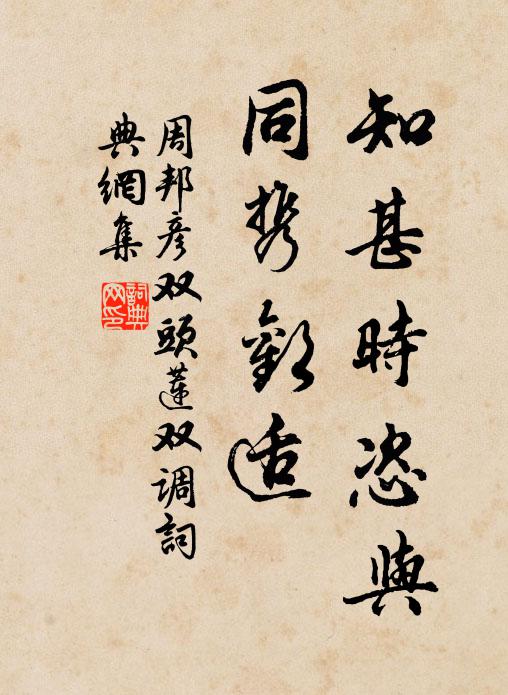 知甚時恣與
同携歡适
周邦彦双頭蓮双调詞
典網集
詞典网印